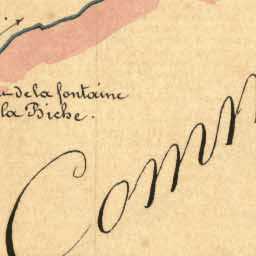 de la fontaine
la Biche.
Comm